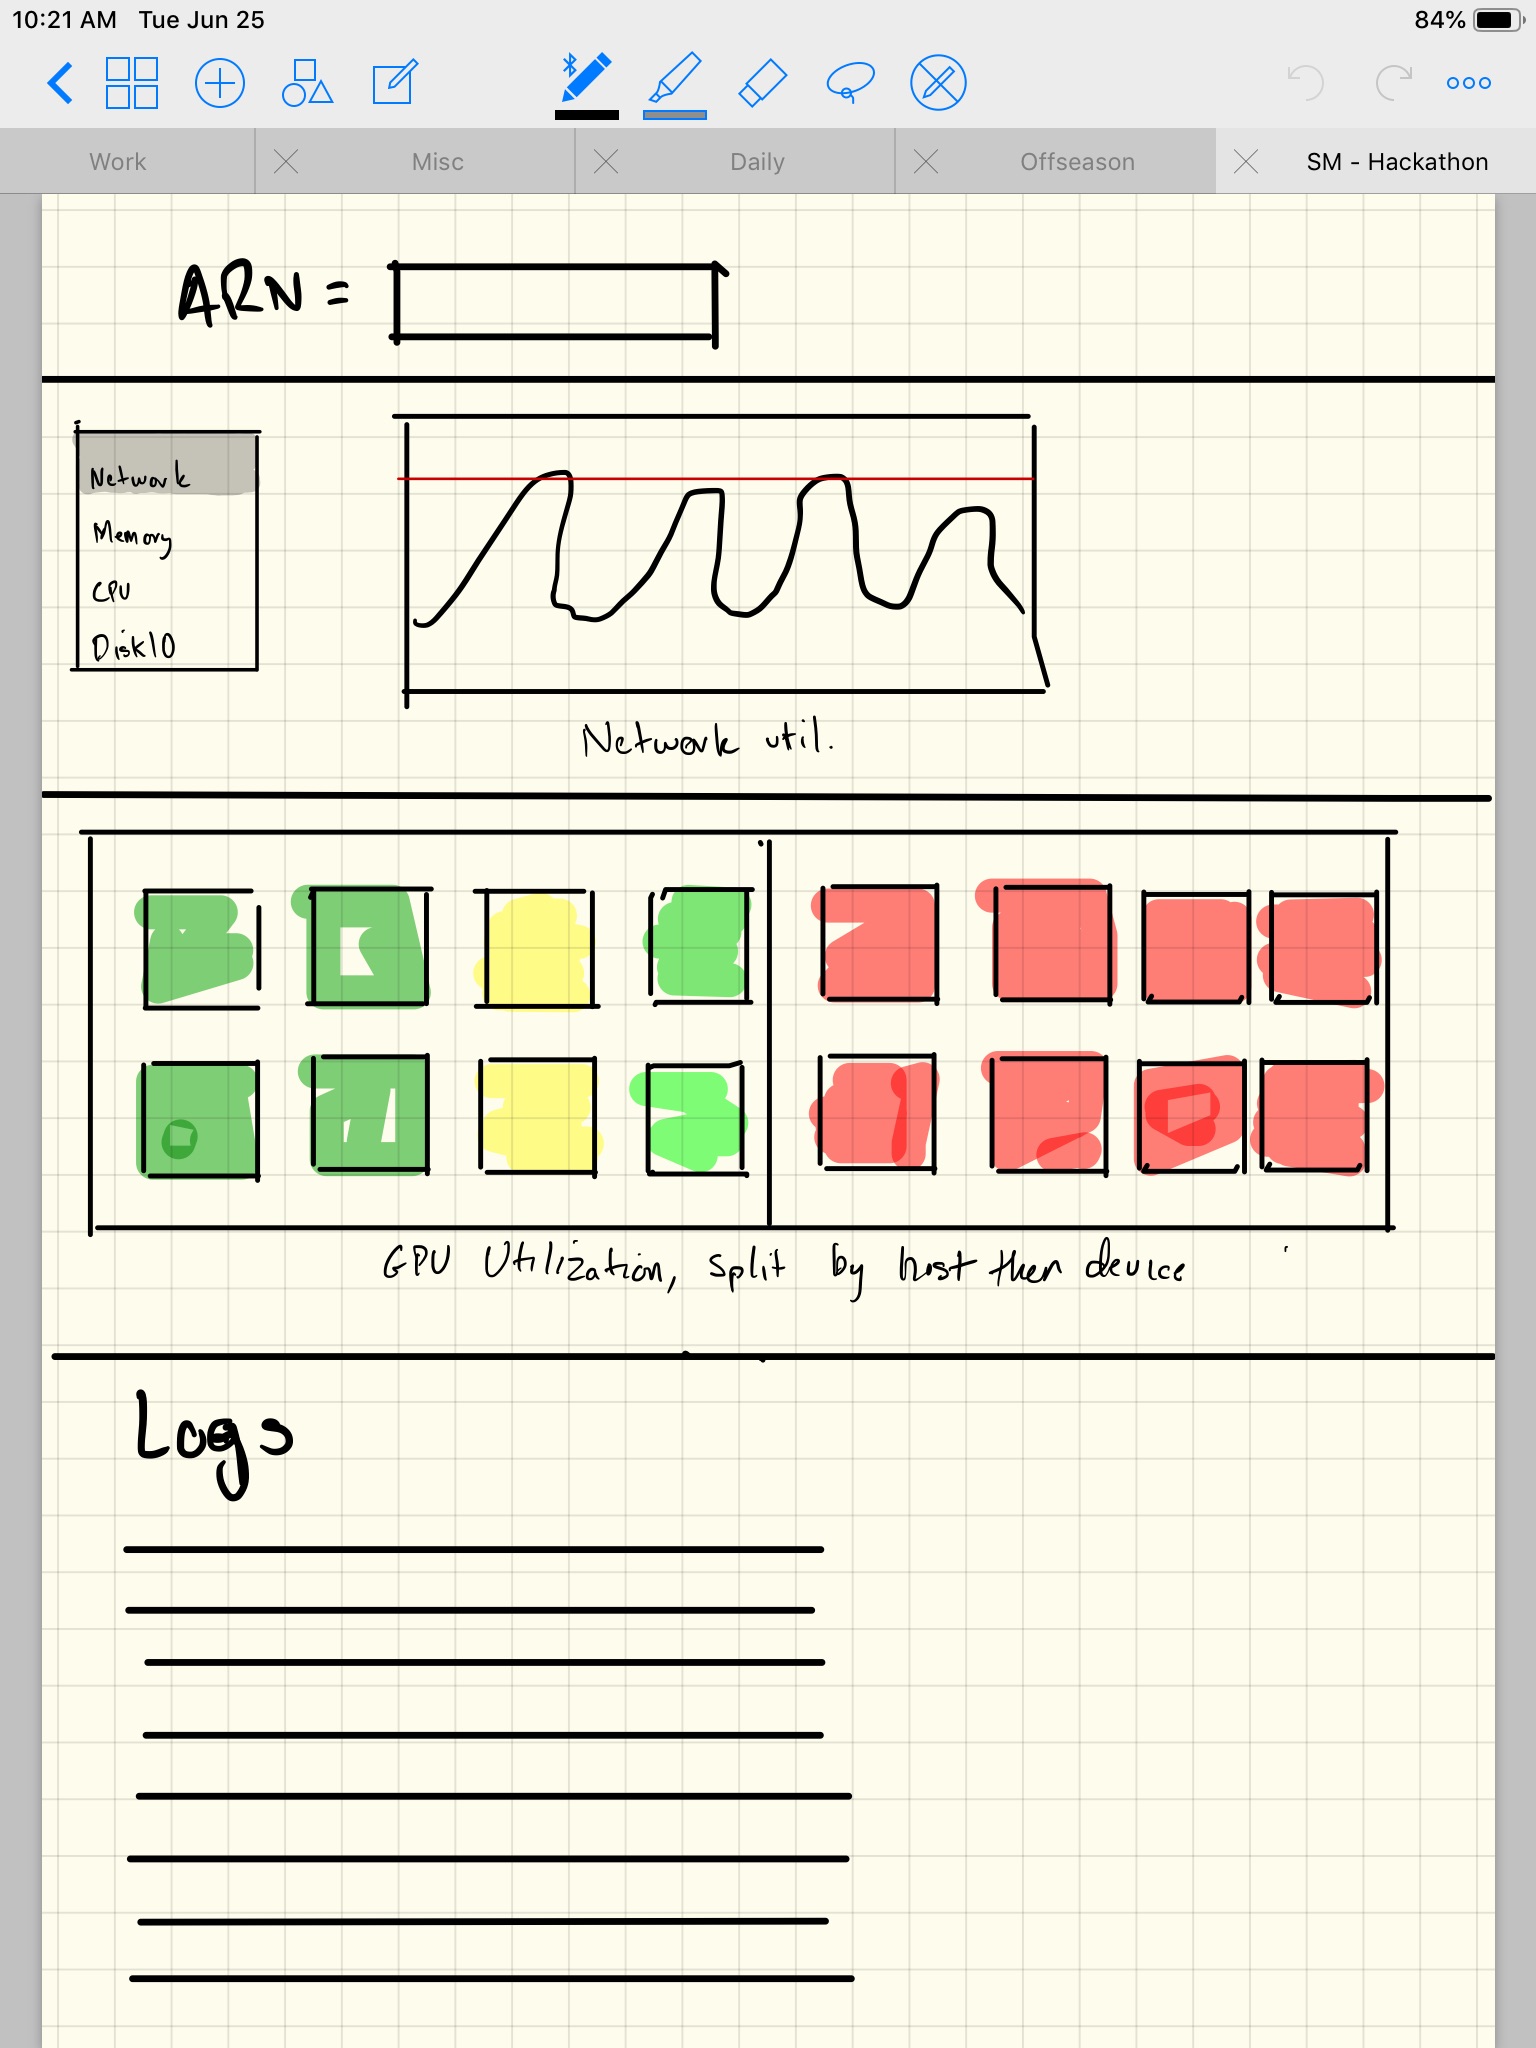 10:21 AM Tue Jun 25 84%
Work Misc Daily Offseason SM - Hackathon
ARN =
Network
Memory
CPU
DiskIO
Network util.
GPU Utilization, split by host then device
Logs